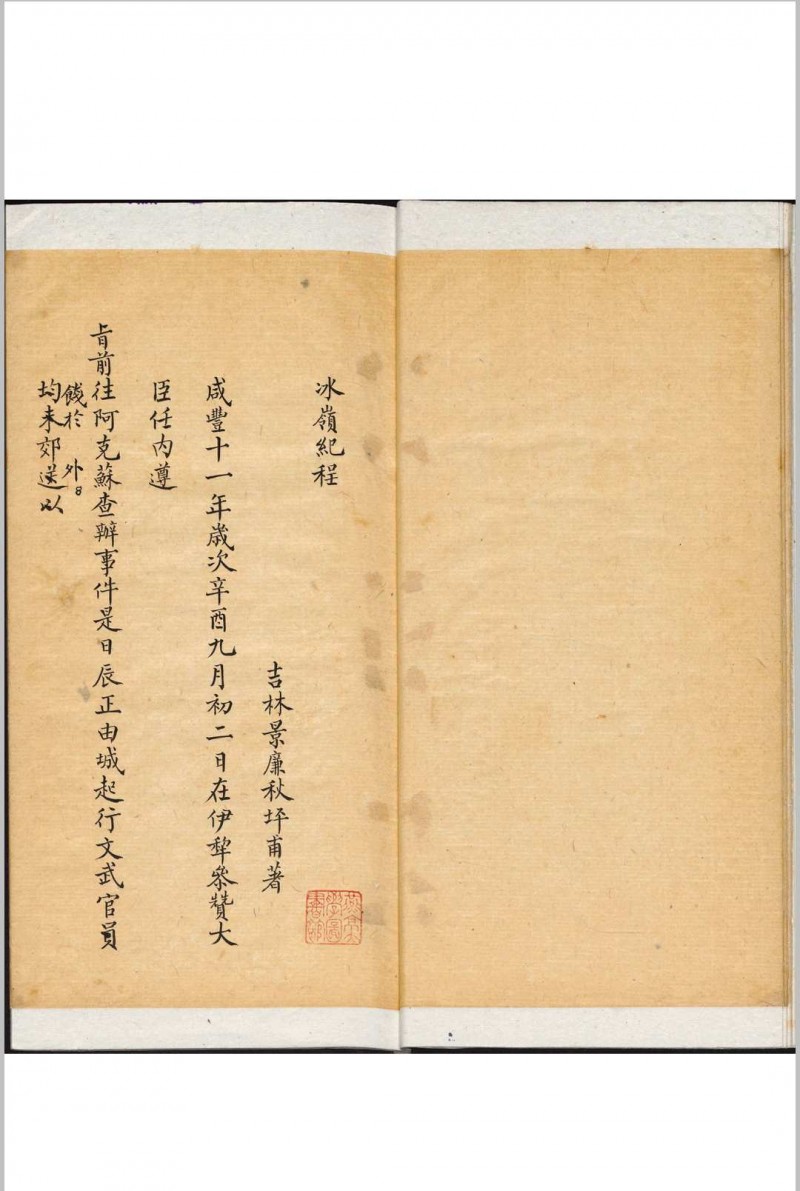 冰嶺紀程
吉林景廉秋坪甫著
燕京大學圖書館
咸豐十一年歲次辛酉九月初二日在伊犂叅贊大
臣任內遵
旨前往阿克蘇查辦事件是日辰正由城起行文武官員
餞於 外
均来郊送以